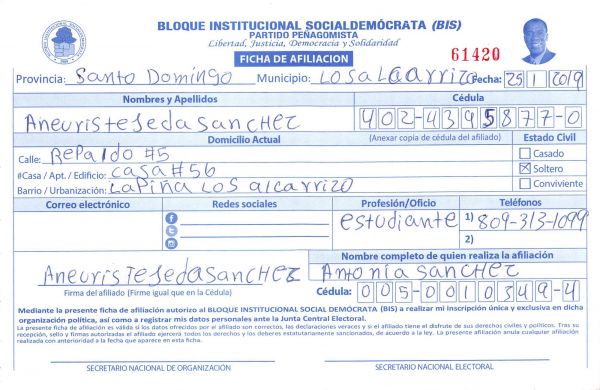 BLOQUE INSTITUCIONAL SOCIALDEMÓCRATA (BIS)
PARTIDO PEÑAGOMISTA
Libertad, Justicia, Democracia y Solidaridad
FICHA DE AFILIACION
61420
Provincia: Santo Domingo Municipio: Los alcarrizo Fecha: 25 1 2019
Nombres y Apellidos Cédula
Aneuris tejeda sanchez 402-4395877-0
Domicilio Actual (Anexar copia de cédula del afiliado) Estado Civil
Calle: Repaldo #5 Casado
#Casa / Apt. / Edificio: casa #56 Soltero
Barrio / Urbanización: La Piña Los alcarrizo Conviviente
Correo electrónico Redes sociales Profesión/Oficio Teléfonos
estudiante 1) 809-313-1099
2)
Nombre completo de quien realiza la afiliación
Aneuris tejeda sanchez Antonia sanchez
Firma del afiliado (Firme igual que en la Cédula) Cédula: 005-0010349-4
Mediante la presente ficha de afiliación autorizo al BLOQUE INSTITUCIONAL SOCIAL DEMÓCRATA (BIS) a realizar mi Inscripción única y exclusiva en dicha
organización política, así como a registrar mis datos personales ante la Junta Central Electoral.
La presente ficha de afiliación es válida si los datos ofrecidos por el afiliado son correctos, las declaraciones veraces y si el afiliado tiene el disfrute de sus derechos civiles y políticos. Tras su
recepción, sello y firmas autorizadas el afiliado ejercerá todos los derechos y los deberes estatutariamente sancionados, de acuerdo a la ley. La presente afiliación anula cualquier afiliación
realizada con anterioridad a la fecha que aparece en esta ficha.
SECRETARIO NACIONAL DE ORGANIZACIÓN SECRETARIO NACIONAL ELECTORAL